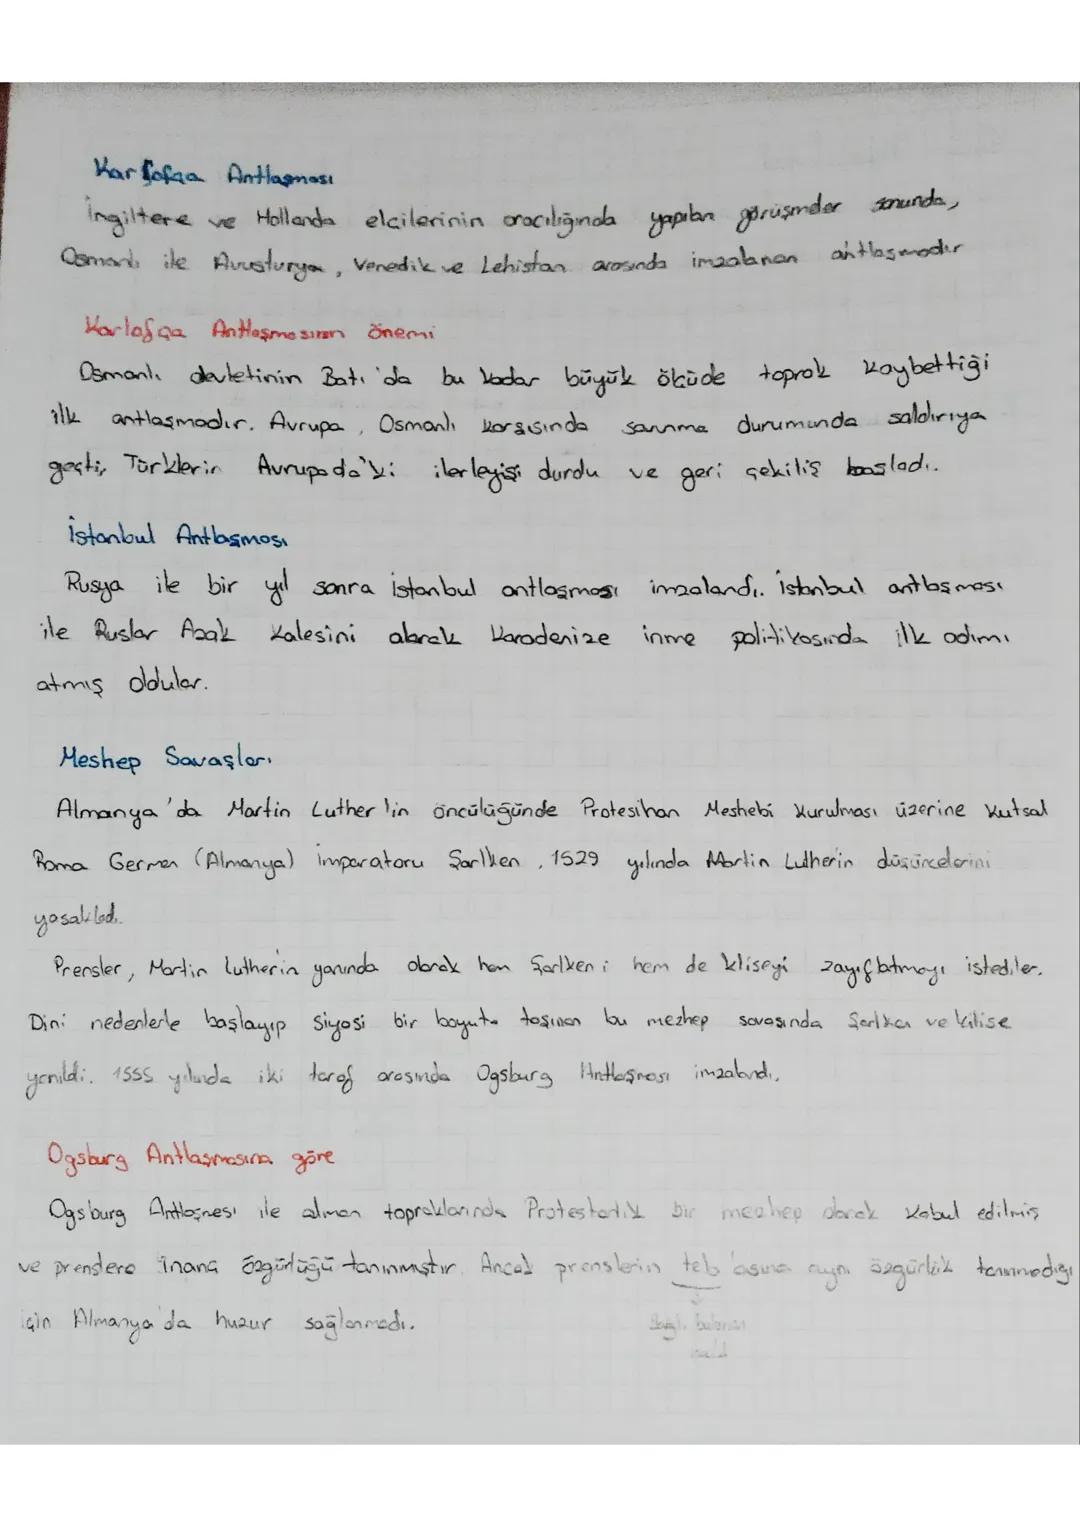 Karlofça Antlaşması
İngiltere ve Hollanda elçilerinin aracılığında yapılan görüşmeler sonunda,
Osmanlı ile Avusturya, Venedik ve Lehistan arasında imzalanan antlaşmadır
Karlofça Antlaşmasının önemi
Osmanlı devletinin Batı'da bu kadar büyük ölçüde toprak kaybettiği
ilk antlaşmadır. Avrupa, Osmanlı karşısında savunma durumunda saldırıya
geçti, Türklerin Avrupada'ki ilerleyişi durdu ve geri çekiliş başladı.
İstanbul Antlaşması
Rusya ile bir yıl sonra İstanbul antlaşması imzalandı. İstanbul antlaşması
ile Ruslar Azak Kalesini alarak Karadenize inme politikasında ilk adımı
atmış oldular.
Meshep Savaşları
Almanya'da Martin Luther'in öncülüğünde Protestihan Meshebi kurulması üzerine Kutsal
Roma Germen (Almanya) imparatoru Şarlken, 1529 yılında Martin Luther'in düşüncelerini
yasakladı.
Prensler, Martin Luther'in yanında olarak hem Şarlken'i hem de kliseyi zayıflatmayı istediler.
Dini nedenlerle başlayıp siyasi bir boyuta taşınan bu mezhep savaşında Şarlken ve kilise
yenildi. 1555 yılında iki taraf arasında Ogsburg Antlaşması imzalandı.
Ogsburg Antlaşmasına göre
Ogsburg Antlaşması ile alman topraklarında Protestanlık bir mezhep olarak kabul edilmiş
ve prenslere inanç özgürlüğü tanınmıştır. Ancak prenslerin teb'asına aynı özgürlük tanınmadığı
için Almanya'da huzur sağlanmadı.
Bağlı bulunan
halk